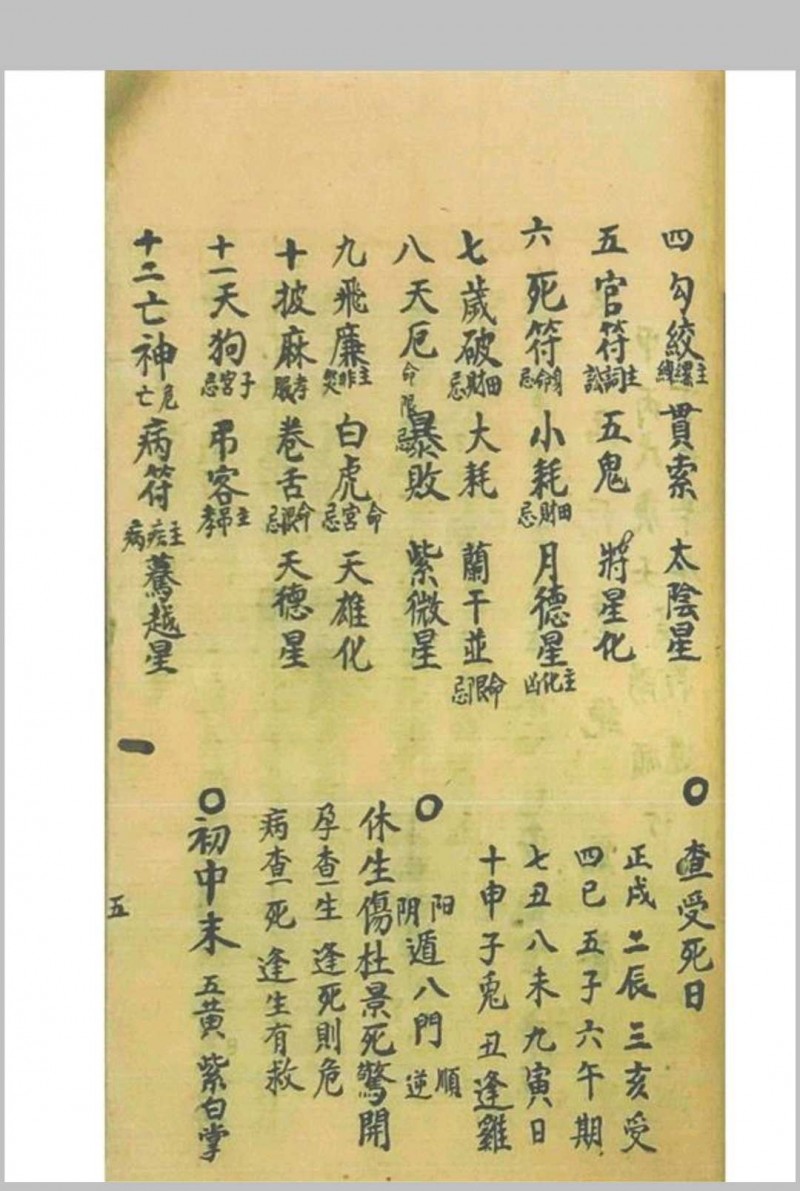 四勾絞主纏繞貫索 太陰星
五官符主詞訟五鬼 將星化
六死符身命忌小耗田財忌月德星主化凶
七歲破田財忌大耗 蘭干並命限忌
八天厄命限忌暴敗 紫微星
九飛廉主非哭白虎命宮忌天雄化
十披麻孝服卷舌命限忌天德星
十一天狗子宮忌吊客主吊孝
十二亡神危亡病符主疾病驀越星
查受死日
正戌二辰三亥受
四巳五子六午期
七丑八未九寅日
十申子兎丑逢雞
阳阴遁八門順逆
休生傷杜景死驚開
孕查一生逢死則危
病查一死逢生有救
初中末 五黄紫白掌
五